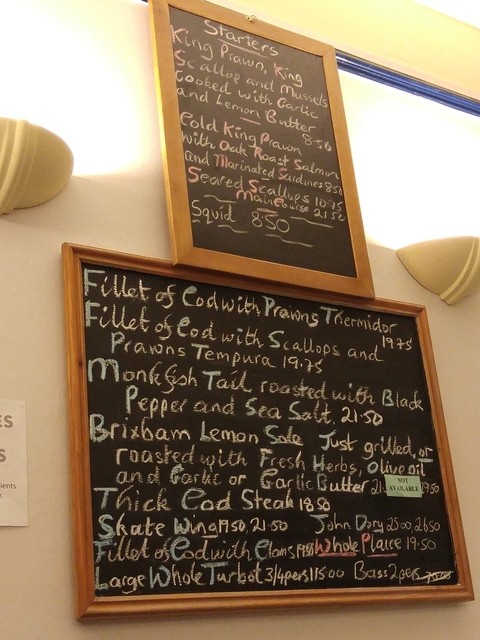 Starters
King Prawn, King
Scallop and Mussels
Cooked with Garlic
and Lemon Butter
8.50
Cold King Prawn
with Oak Roast Salmon
and Marinated Sardines 8.50
Seared Scallops 10.95
Maincourse 21.50
Squid 8.50
Fillet of Cod with Prawns Thermidor
19.75
Fillet of Cod with Scallops and
Prawns Tempura 19.75
Monkfish Tail roasted with Black
Pepper and Sea Salt. 21.50
Brixham Lemon Sole Just grilled, or
roasted with Fresh Herbs, Olive oil
and Garlic or Garlic Butter
NOT
AVAILABLE
Thick Cod Steak 18.50
Skate Wing 19.50, 21.50 John Dory 25.00, 26.50
Fillet of Cod with Clams 19.50 Whole Plaice 19.50
Large Whole Turbot 3/4 pers 115.00 Bass 2 pers
ES
S
ients